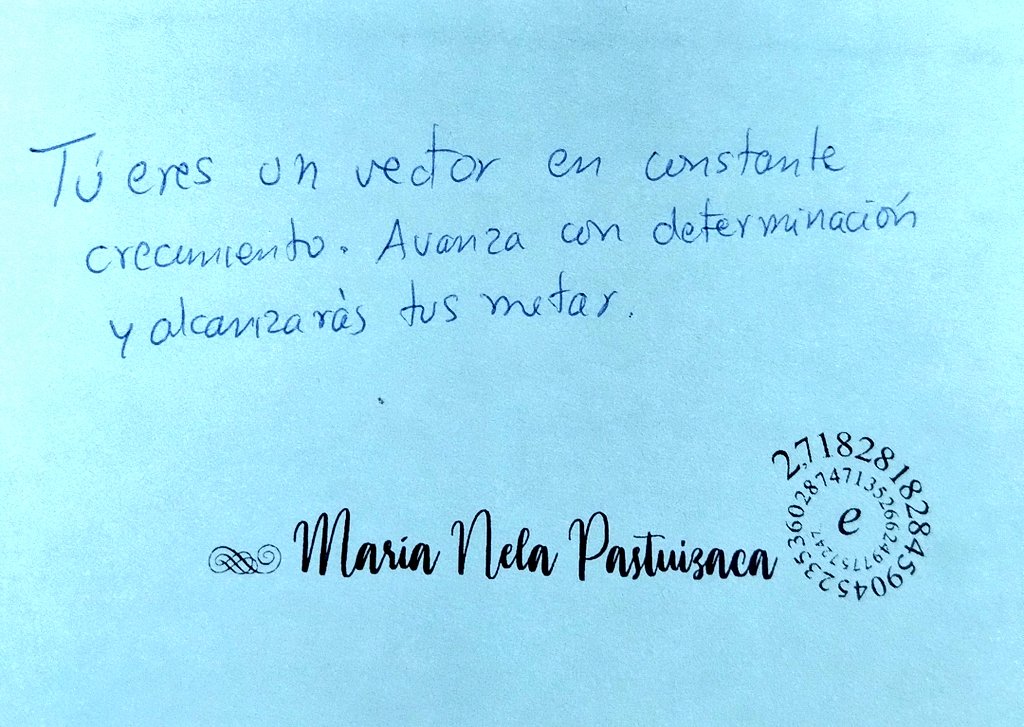 Tú eres un vector en constante
crecimiento. Avanza con determinación
y alcanzarás tus metas.
María Nela Pastuizaca
2,718281828459045235360287471352662497757247
e